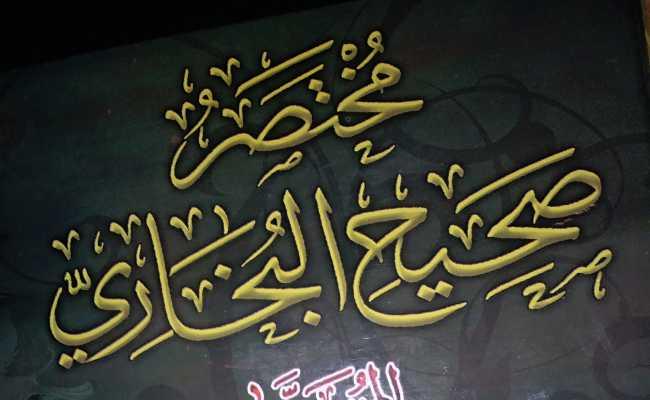 مُخْتَصَرُ
صَحِيحِ البُخَارِيِّ